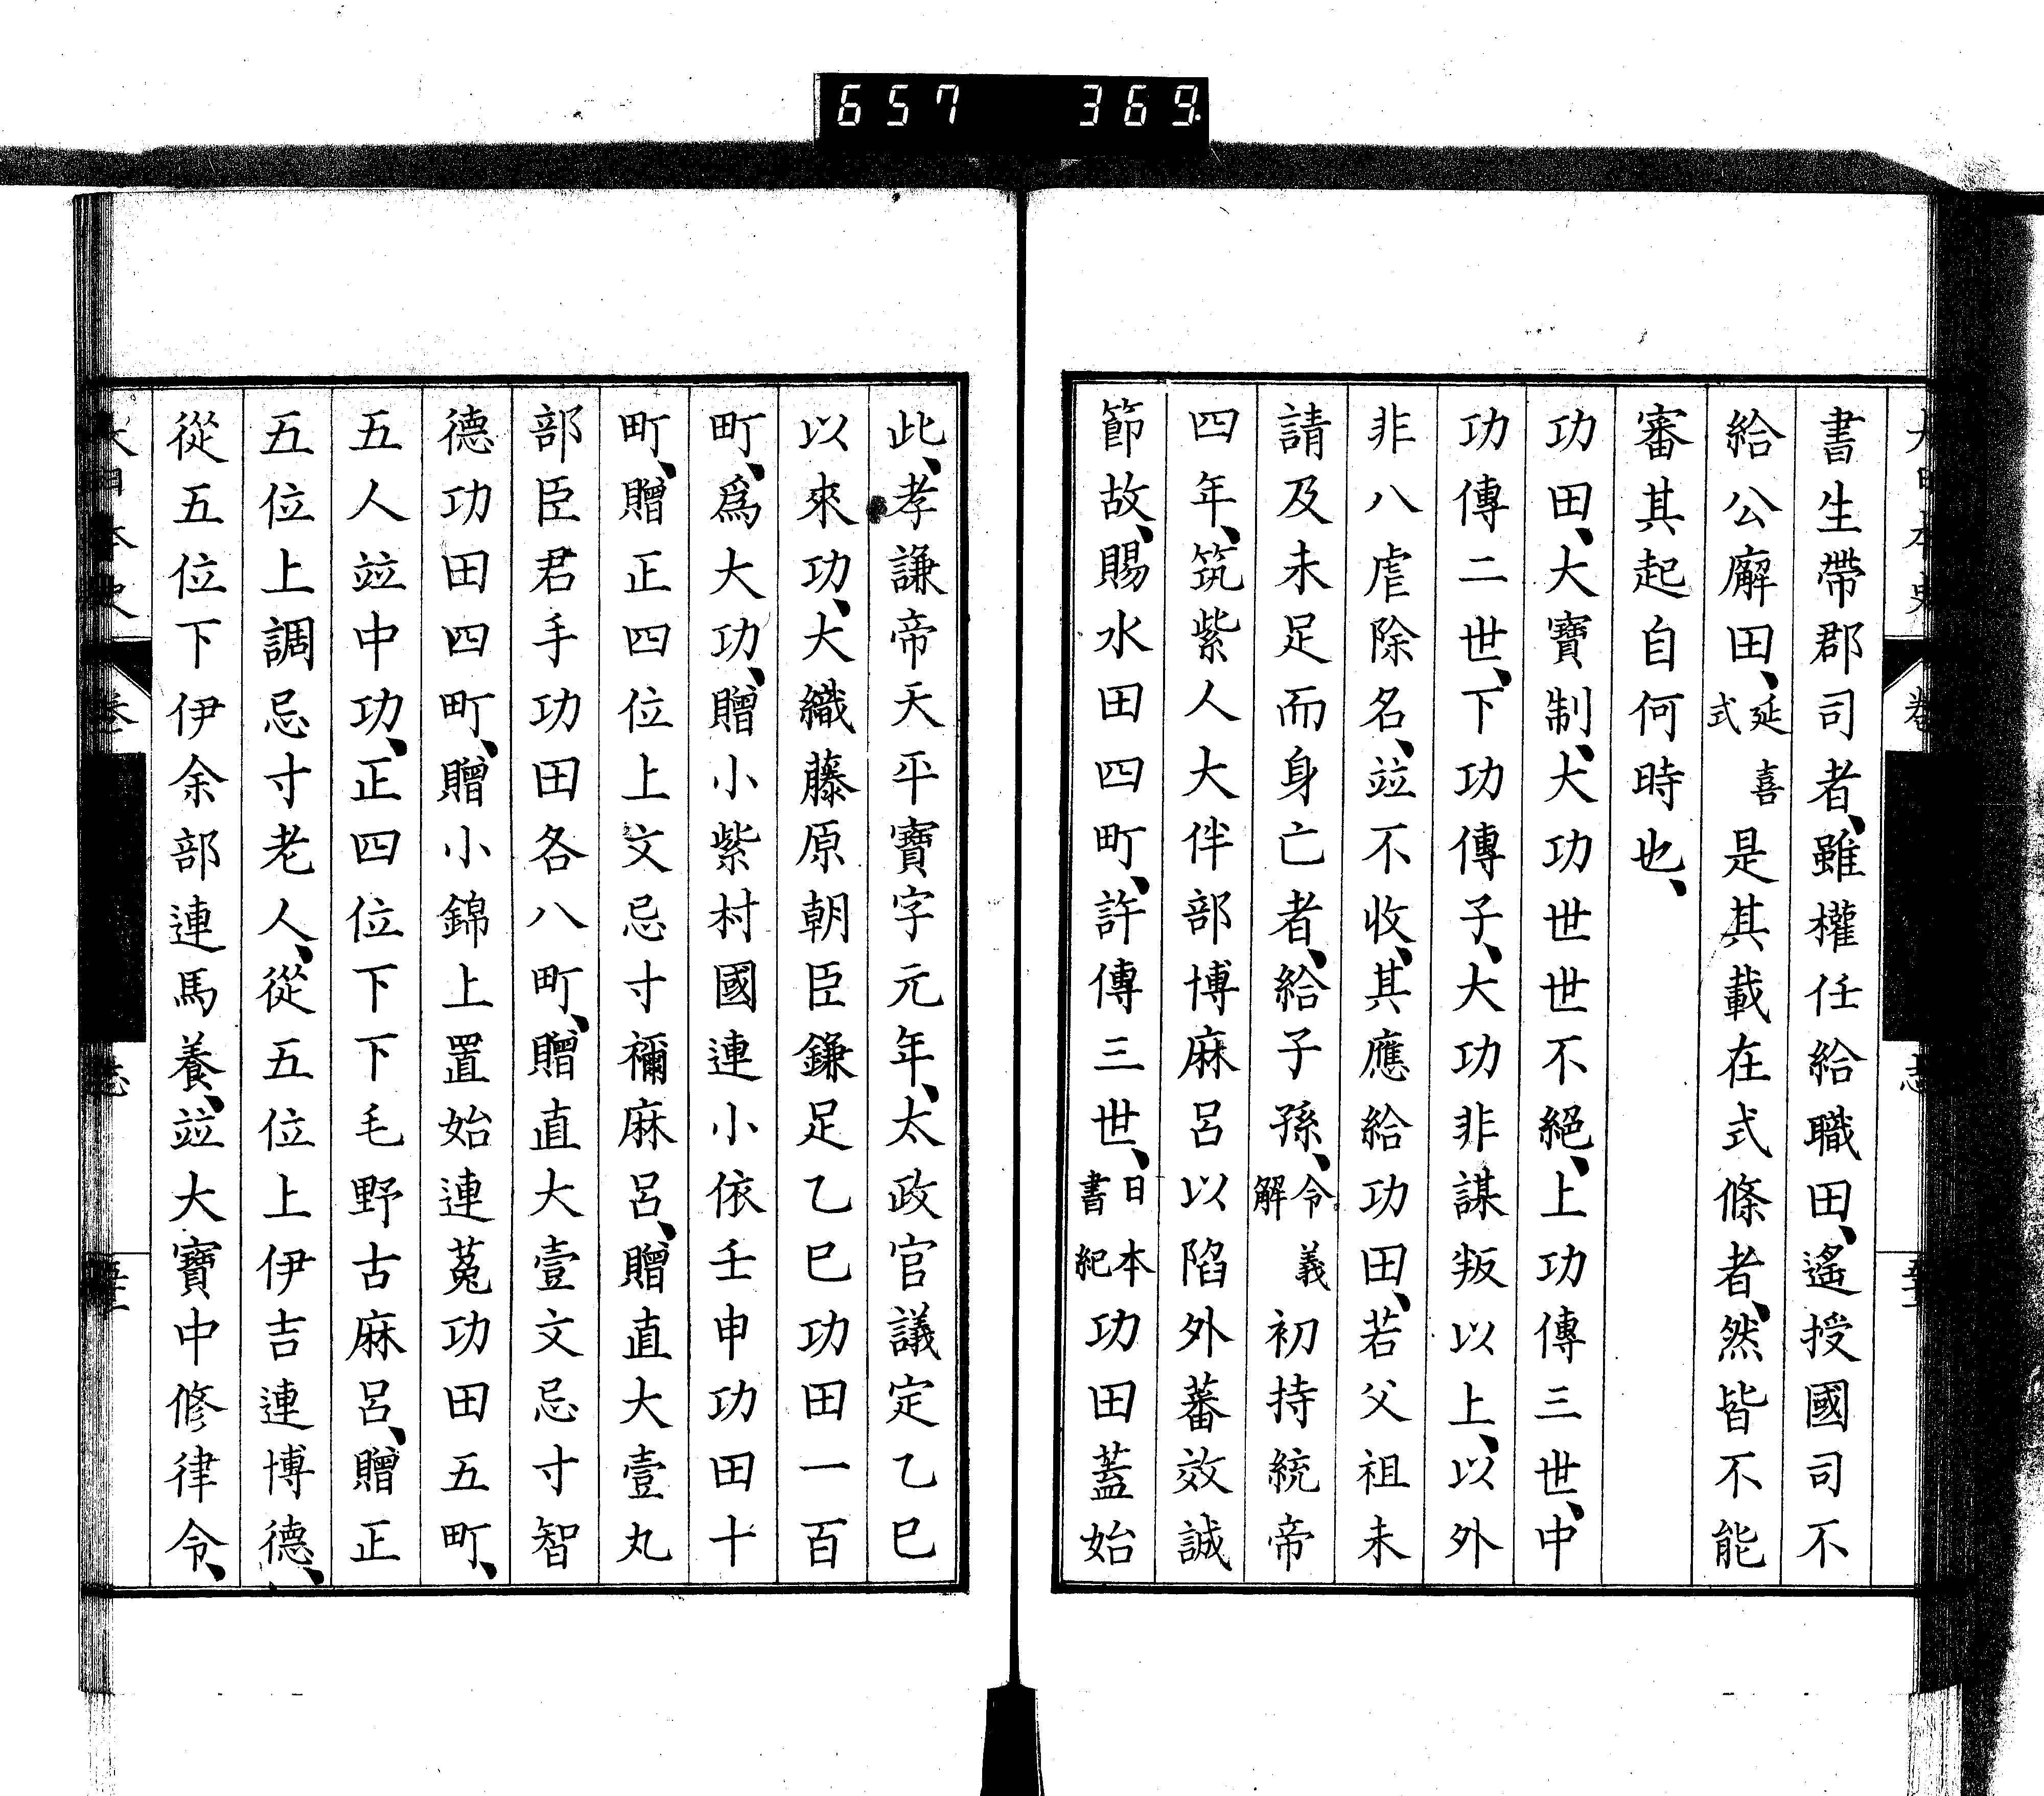 657 369
書生帶郡司者、雖權任給職田、遙授國司不
給公廨田、延喜式是其載在式條者、然皆不能
審其起自何時也、
功田、大寶制、大功世世不絕、上功傳三世、中
功傳二世、下功傳子、大功非謀叛以上、以外
非八虐除名、竝不收、其應給功田、若父祖未
請及未足而身亡者、給子孫、令義解初持統帝
四年、筑紫人大伴部博麻呂以陷外蕃效誠
節故、賜水田四町、許傳三世、日本書紀功田蓋始
此、孝謙帝天平寶字元年、太政官議定乙巳
以來功、大織藤原朝臣鎌足乙巳功田一百
町、爲大功、贈小紫村國連小依壬申功田十
町、贈正四位上文忌寸禰麻呂、贈直大壹丸
部臣君手功田各八町、贈直大壹文忌寸智
德功田四町、贈小錦上置始連菟功田五町、
五人竝中功、正四位下下毛野古麻呂、贈正
五位上調忌寸老人、從五位上伊吉連博德、
從五位下伊余部連馬養、竝大寶中修律令、